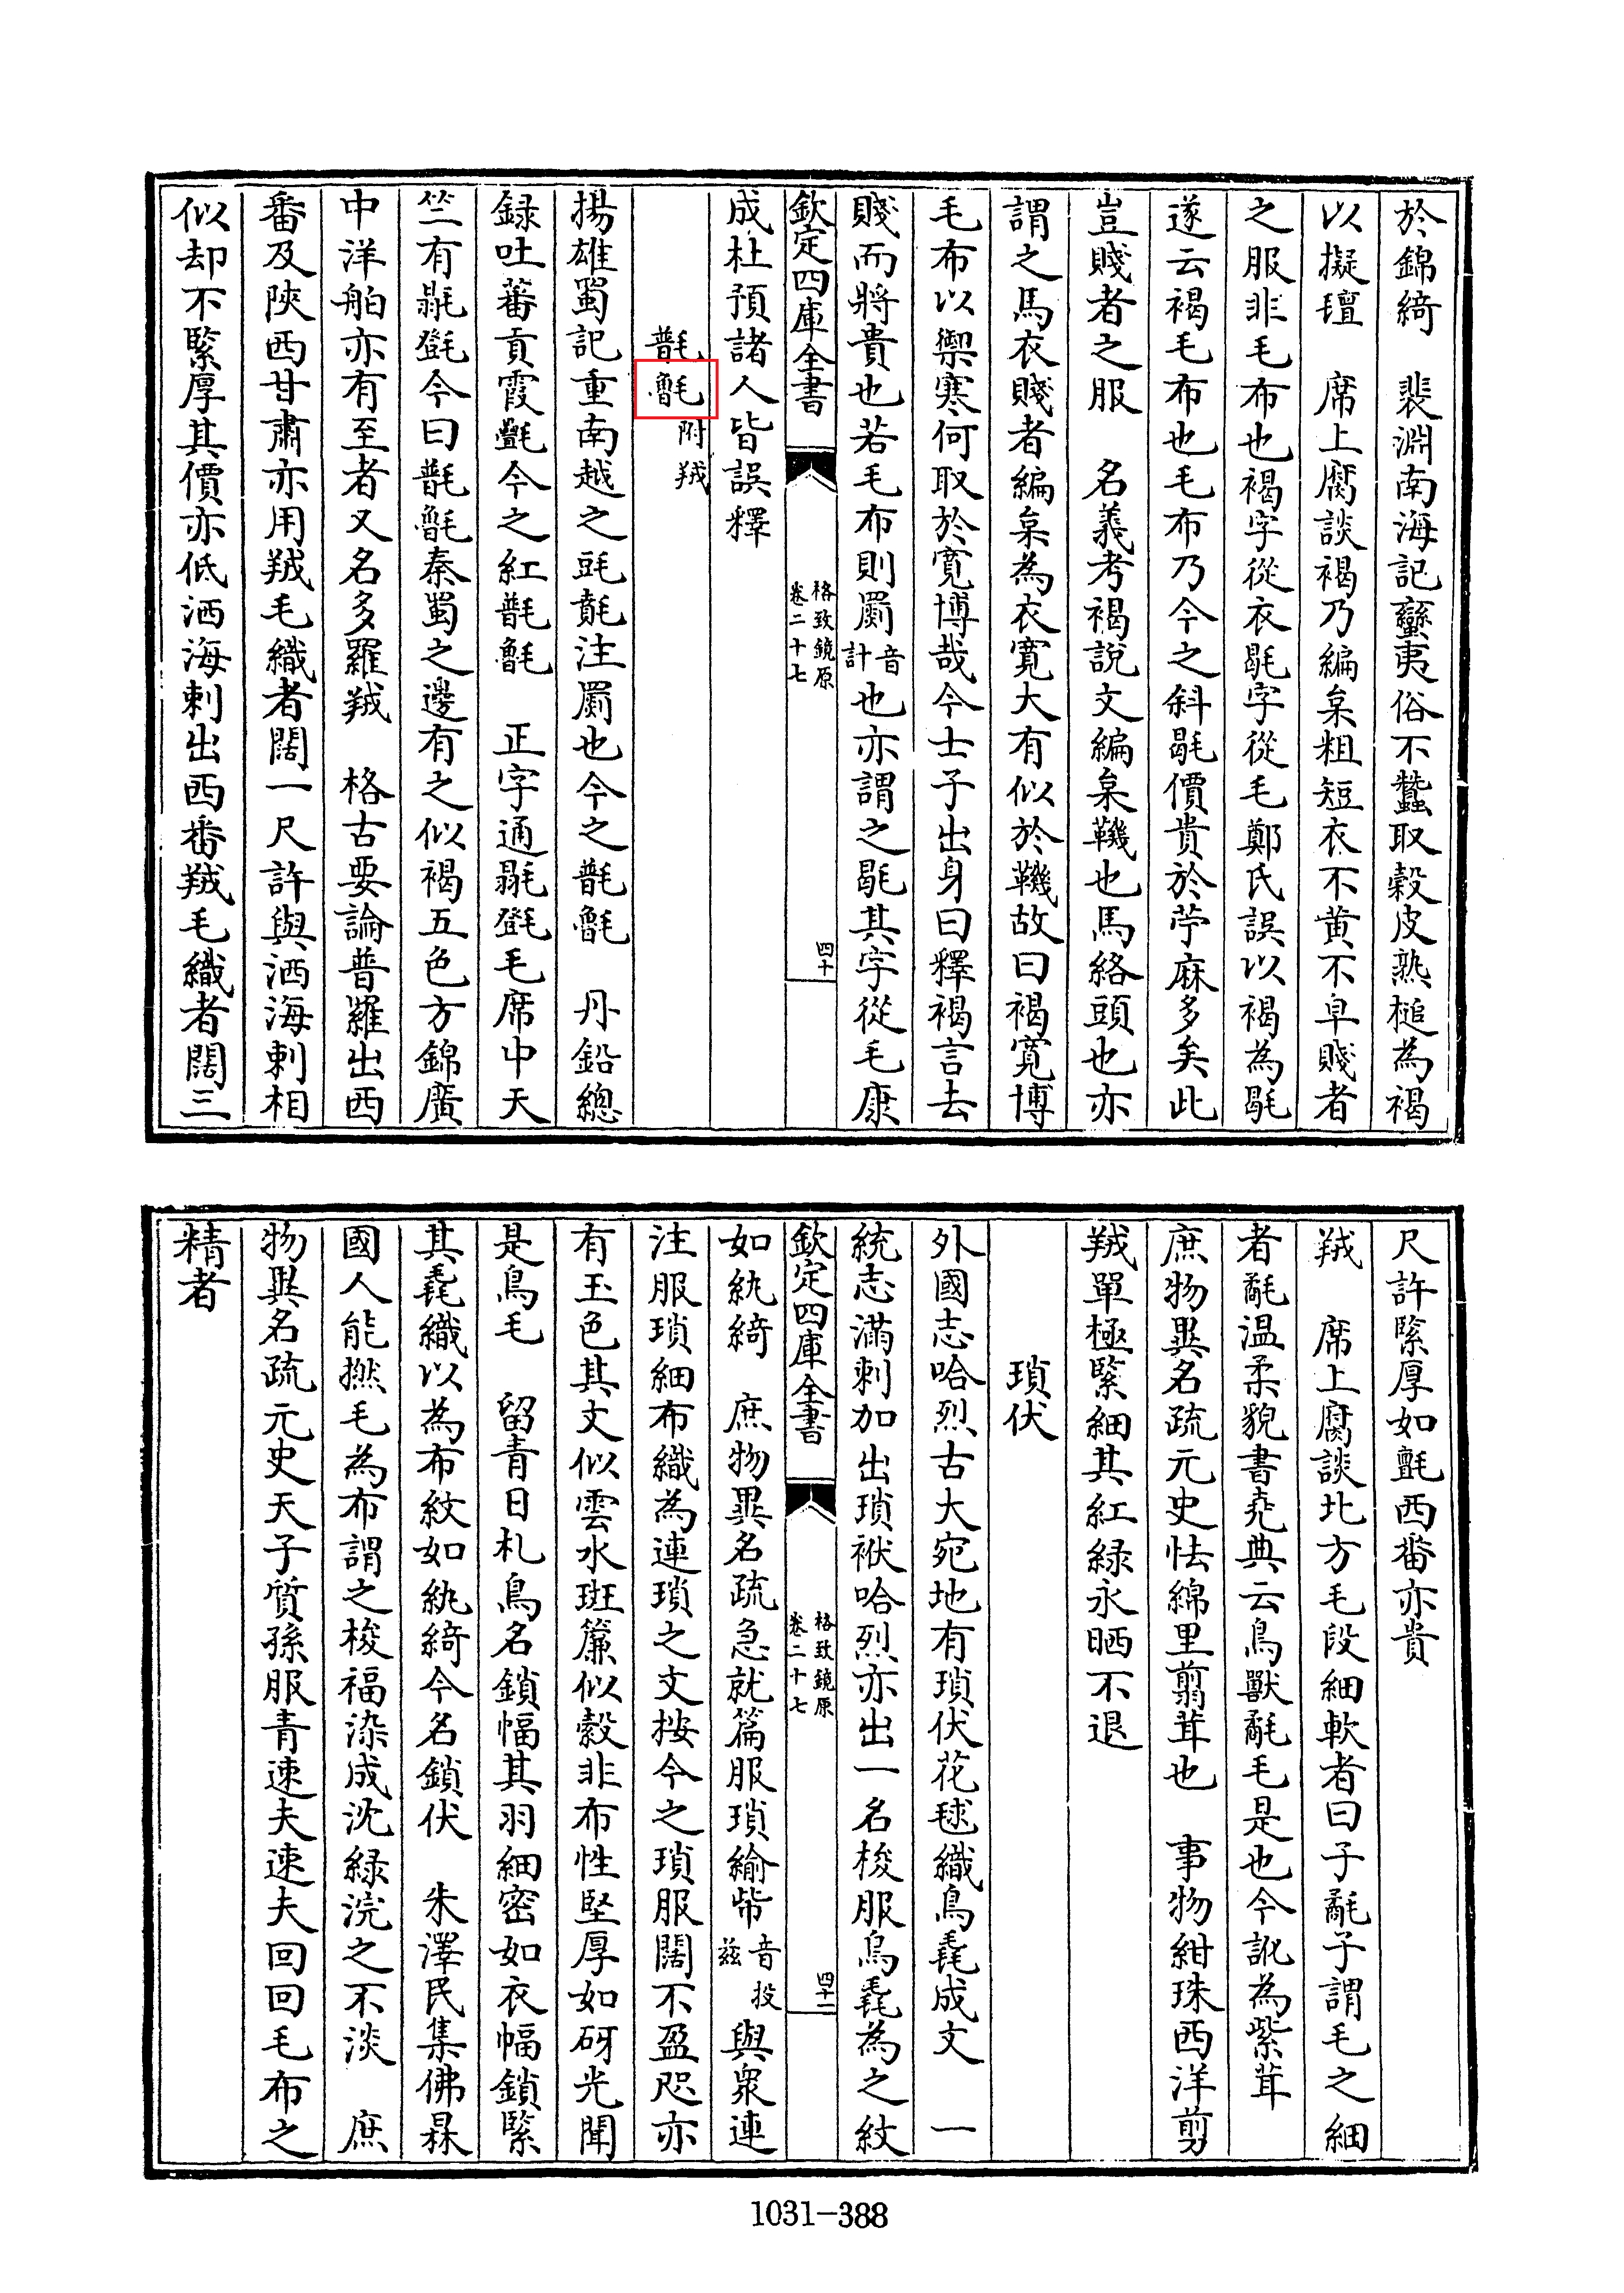 於錦綺　裴淵南海記蠻夷俗不蠶取榖皮熟槌為褐
以擬氊　席上腐談褐乃編枲粗短衣不黄不皁賤者
之服非毛布也褐字從衣毼字從毛鄭氏誤以褐為毼
遂云褐毛布也毛布乃今之斜毼價貴於苧麻多矣此
豈賤者之服　名義考褐説文編枲韤也馬絡頭也亦
謂之馬衣賤者編枲為衣寛大有似於韤故曰褐寛博
毛布以禦寒何取於寛博哉今士子出身曰釋褐言去
賤而將貴也若毛布則罽音計也亦謂之毼其字從毛康
欽定四庫全書
格致鏡原
卷二十七
四十
成杜預諸人皆誤釋
氆氌附羢
揚雄蜀記重南越之㲄㲃注罽也今之氆氌　丹鉛總
録吐蕃貢霞氎今之紅氆氌　正字通毾㲪毛席中天
竺有毾㲪今曰氆氌秦蜀之邊有之似褐五色方錦廣
中洋舶亦有至者又名多羅羢　格古要論普羅出西
番及陜西甘肅亦用羢毛織者闊一尺許與洒海剌相
似却不緊厚其價亦低洒海剌出西番羢毛織者闊三
尺許緊厚如氊西番亦貴
羢　席上腐談北方毛段細軟者曰子氄子謂毛之細
者氄温柔貌書堯典云鳥獸氄毛是也今訛為紫茸
庶物異名疏元史怯綿里翦茸也　事物紺珠西洋剪
羢單極緊細其紅緑永晒不退
瑣伏
外國志哈烈古大宛地有瑣伏花毬織鳥毳成文　一
統志滿剌加出瑣袱哈烈亦出一名梭服鳥毳為之紋
欽定四庫全書
格致鏡原
卷二十七
四十一
如紈綺　庶物異名疏急就篇服瑣緰㡜音投兹與衆連
注服瑣細布織為連瑣之文按今之瑣服闊不盈咫亦
有玉色其文似雲水斑簾似縠非布性堅厚如砑光聞
是鳥毛　留青日札鳥名鎖幅其羽細密如衣幅鎖緊
其毳織以為布紋如紈綺今名鎖伏　朱澤民集佛菻
國人能撚毛為布謂之梭福染成沈緑浣之不淡　庶
物異名疏元史天子質孫服青速夫速夫回回毛布之
精者
1031-388